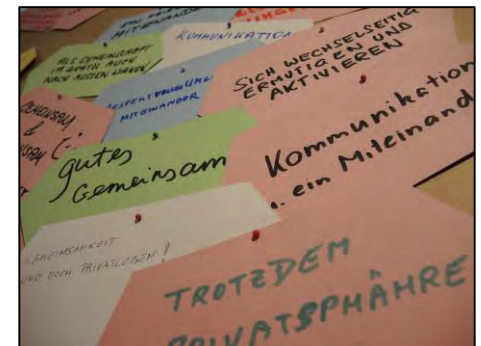 MITEINANDER
KOMMUNIKATION
ALS GEMEINSCHAFT
AUCH
NACH AUSSEN WIRKEN
SICH WECHSELSEITIG
ERMUTIGEN UND
AKTIVIEREN
MITEINANDER
gutes
Gemeinsam
Kommunikation
ein Miteinand
GEMEINSAMKEIT
UND DOCH PRIVATLEBEN!
TROTZDEM
PRIVATSPHÄHRE